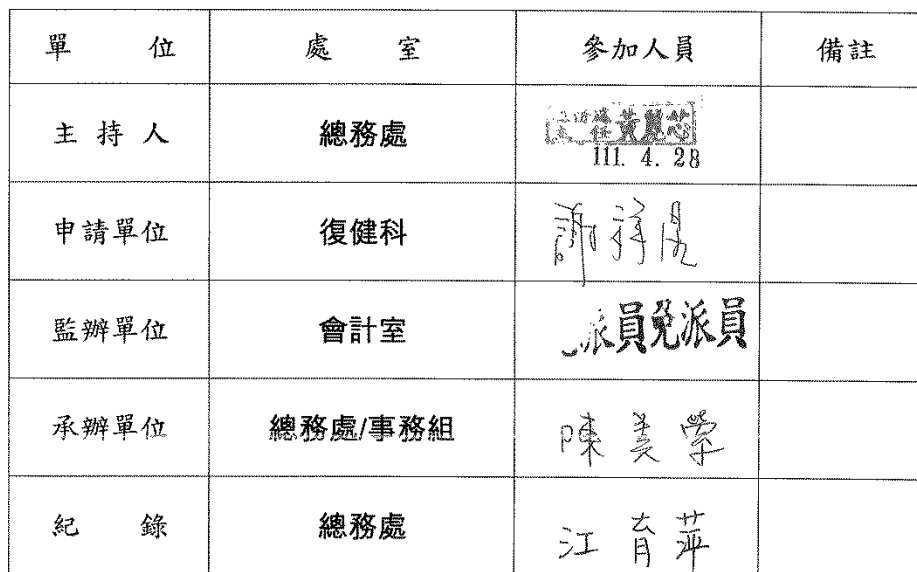 單 位 處 室 參加人員 備註
主 持 人 總務處 黃麗芯
111. 4. 28
申請單位 復健科 謝祥
監辦單位 會計室 派員免派員
承辦單位 總務處/事務組 陳美
紀 錄 總務處 江育萍